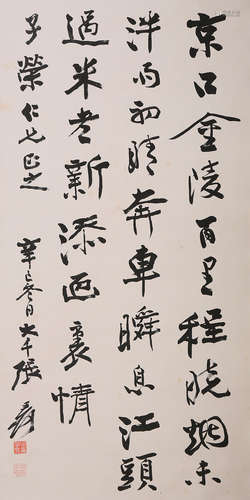 京口金陵百里程曉烟未
泮雨初晴奔車瞬息江頭
過米老新添画裏情
子榮仁兄正之
辛巳冬日大千張爰